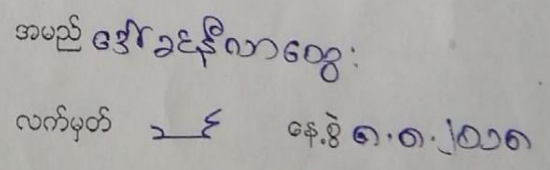 အမည် ဒေါ်ခင်နီလာထွေး
လက်မှတ် ခင် နေ့စွဲ ၈.၈.၂၀၁၈